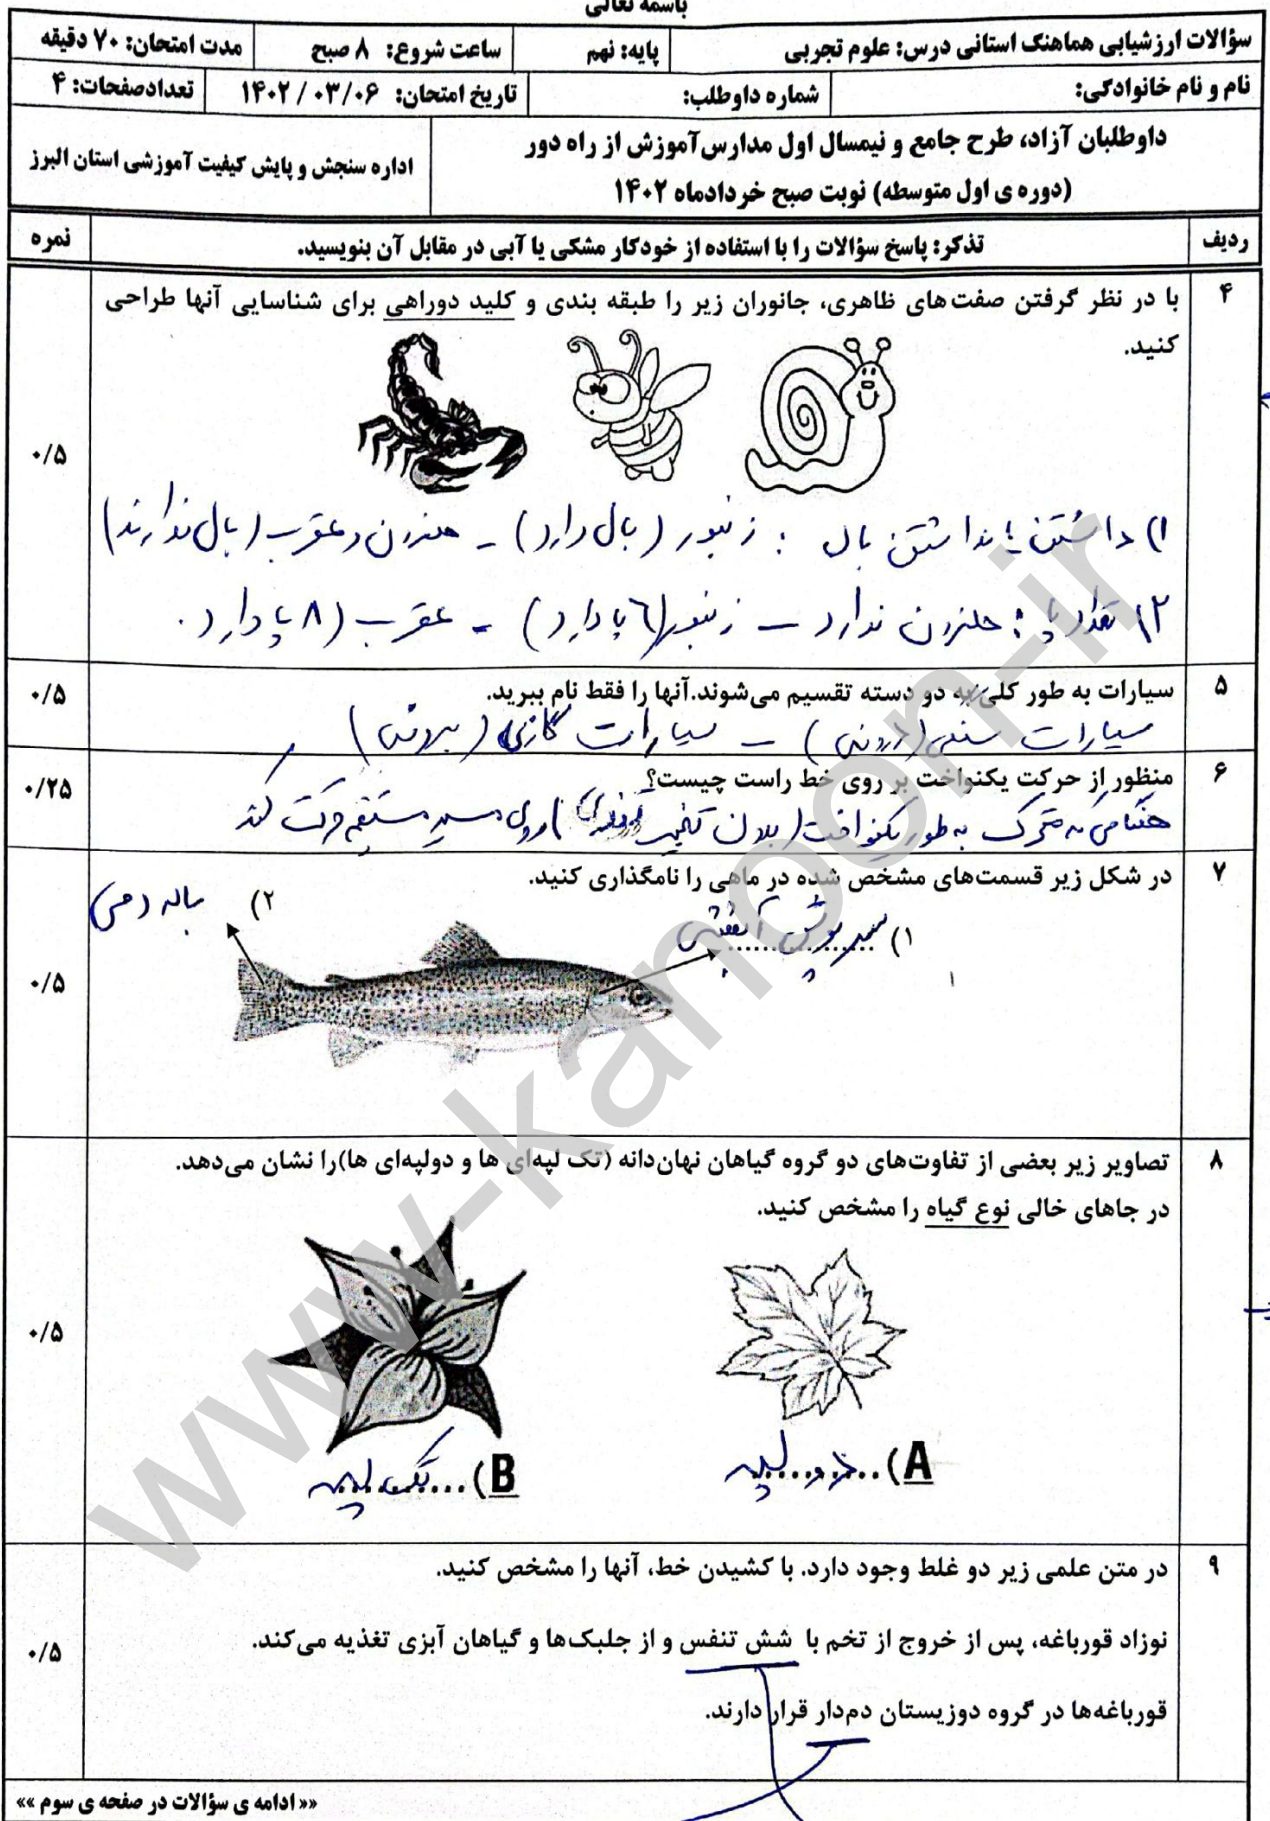 باسمه تعالی
سؤالات ارزشیابی هماهنک استانی درس: علوم تجربی
پایه: نهم
ساعت شروع: ۸ صبح
مدت امتحان: ۷۰ دقیقه
نام و نام خانوادگی:
شماره داوطلب:
تاریخ امتحان: ۱۴۰۲/۰۳/۰۶
تعدادصفحات: ۴
داوطلبان آزاد، طرح جامع و نیمسال اول مدارس آموزش از راه دور
(دوره ی اول متوسطه) نوبت صبح خردادماه ۱۴۰۲
اداره سنجش و پایش کیفیت آموزشی استان البرز
ردیف
تذکر: پاسخ سؤالات را با استفاده از خودکار مشکی یا آبی در مقابل آن بنویسید.
نمره
۴
با در نظر گرفتن صفت های ظاهری، جانوران زیر را طبقه بندی و کلید دوراهی برای شناسایی آنها طراحی
کنید.
۰/۵
۱) داشتن یا نداشتن بال : زنبور (بال دارد) - حلزون و عقرب (بال ندارند)
۲) تعداد پا : حلزون ندارد - زنبور (۶ پا دارد) - عقرب (۸ پا دارد.
۵
سیارات به طور کلی به دو دسته تقسیم می‌شوند.آنها را فقط نام ببرید.
۰/۵
سیارات سنگی (درونی) - سیارات گازی (بیرونی)
۶
منظور از حرکت یکنواخت بر روی خط راست چیست؟
۰/۲۵
هنگامی که متحرک به طور یکنواخت (بدون تغییر تندی) روی مسیر مستقیم حرکت کند
۷
در شکل زیر قسمت‌های مشخص شده در ماهی را نامگذاری کنید.
۰/۵
۱) سرپوش آبششی
۲) باله دمی
۸
تصاویر زیر بعضی از تفاوت‌های دو گروه گیاهان نهان‌دانه (تک لپه‌ای ها و دولپه‌ای ها)را نشان می‌دهد.
در جاهای خالی نوع گیاه را مشخص کنید.
۰/۵
A) دو لپه
B) تک لپه
۹
در متن علمی زیر دو غلط وجود دارد. با کشیدن خط، آنها را مشخص کنید.
نوزاد قورباغه، پس از خروج از تخم با شش تنفس و از جلبک‌ها و گیاهان آبزی تغذیه می‌کند.
۰/۵
قورباغه‌ها در گروه دوزیستان دم‌دار قرار دارند.
«« ادامه ی سؤالات در صفحه ی سوم »»
www-kanoon-ir